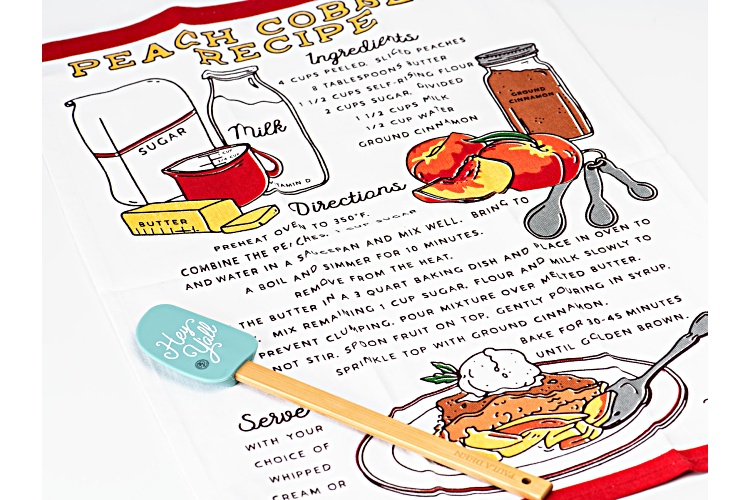 PEACH COBBLER
RECIPE
Ingredients
4 CUPS PEELED, SLICED PEACHES
8 TABLESPOONS BUTTER
1 1/2 CUPS SELF-RISING FLOUR
2 CUPS SUGAR, DIVIDED
1 1/2 CUPS MILK
1/2 CUP WATER
GROUND CINNAMON
GROUND
CINNAMON
SUGAR
Milk
1 CUP
VITAMIN D
BUTTER
Directions
PREHEAT OVEN TO 350°F.
COMBINE THE PEACHES, 1 CUP SUGAR
AND WATER IN A SAUCEPAN AND MIX WELL. BRING TO
A BOIL AND SIMMER FOR 10 MINUTES.
REMOVE FROM THE HEAT.
THE BUTTER IN A 3 QUART BAKING DISH AND PLACE IN OVEN TO
MIX REMAINING 1 CUP SUGAR, FLOUR AND MILK SLOWLY TO
PREVENT CLUMPING. POUR MIXTURE OVER MELTED BUTTER.
NOT STIR. SPOON FRUIT ON TOP, GENTLY POURING IN SYRUP.
SPRINKLE TOP WITH GROUND CINNAMON.
BAKE FOR 30-45 MINUTES
UNTIL GOLDEN BROWN.
Hey
Y'all
Serve
WITH YOUR
CHOICE OF
WHIPPED
CREAM OR
PAULA DEEN